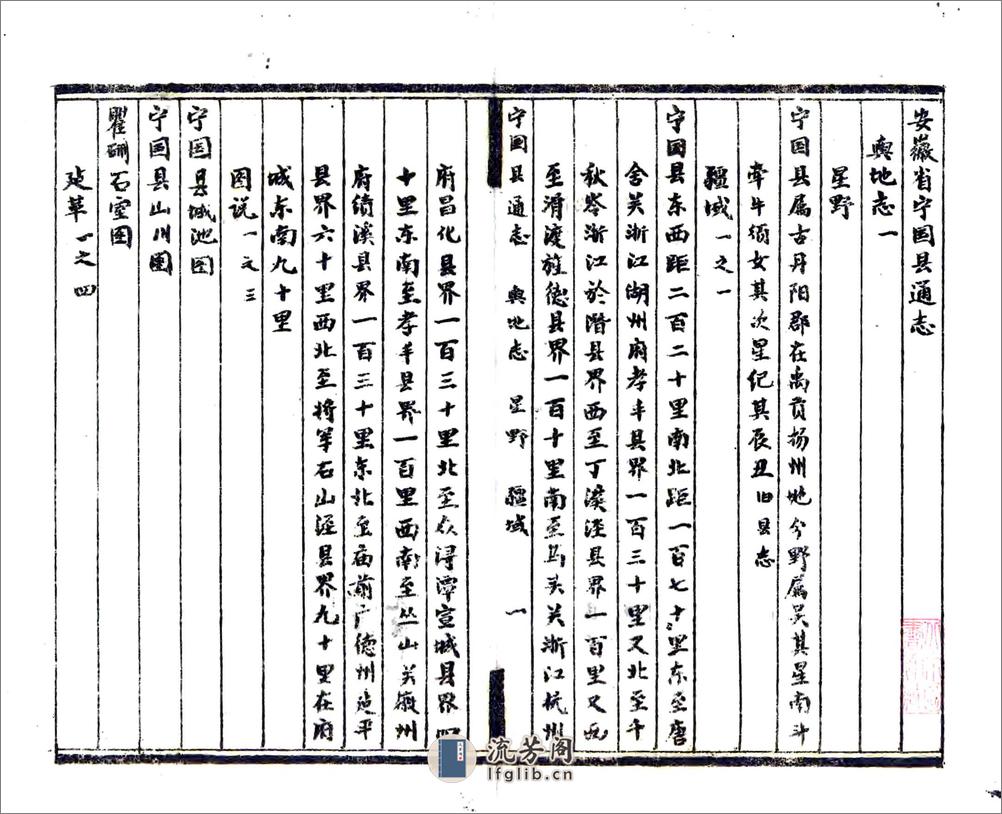 安徽省宁国县通志
舆地志一
星野
宁国县属古丹阳郡在禹贡扬州地分野属吴其星南斗
牵牛须女其次星纪其辰丑旧县志
疆域一之一
宁国县东西距二百二十里南北距一百七十里东至唐
舍关浙江湖州府孝丰县界一百三十里又北至千
秋岭浙江於潜县界西至丁溪泾县界一百里又西
至滑渡旌德县界一百十里南至马头关浙江杭州
宁国县通志 舆地志 星野 疆域 一
府昌化县界一百三十里北至众浔潭宣城县界四
十里东南至孝丰县界一百里西南至丛山关徽州
府绩溪县界一百三十里东北至庙前广德州建平
县界六十里西北至将军石山泾县界九十里在府
城东南九十里
图说一之三
宁国县城池图
宁国县山川图
瞿硎石室图
建革一之四
流芳阁
lfglib.cn